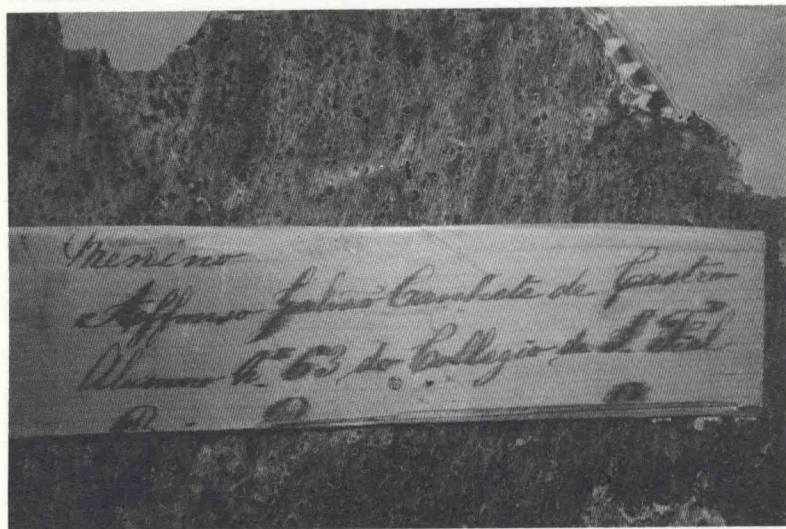 Menino
Affonso Canhete de Castro
Alumno Nº 63 do Collegio de S. Fiel